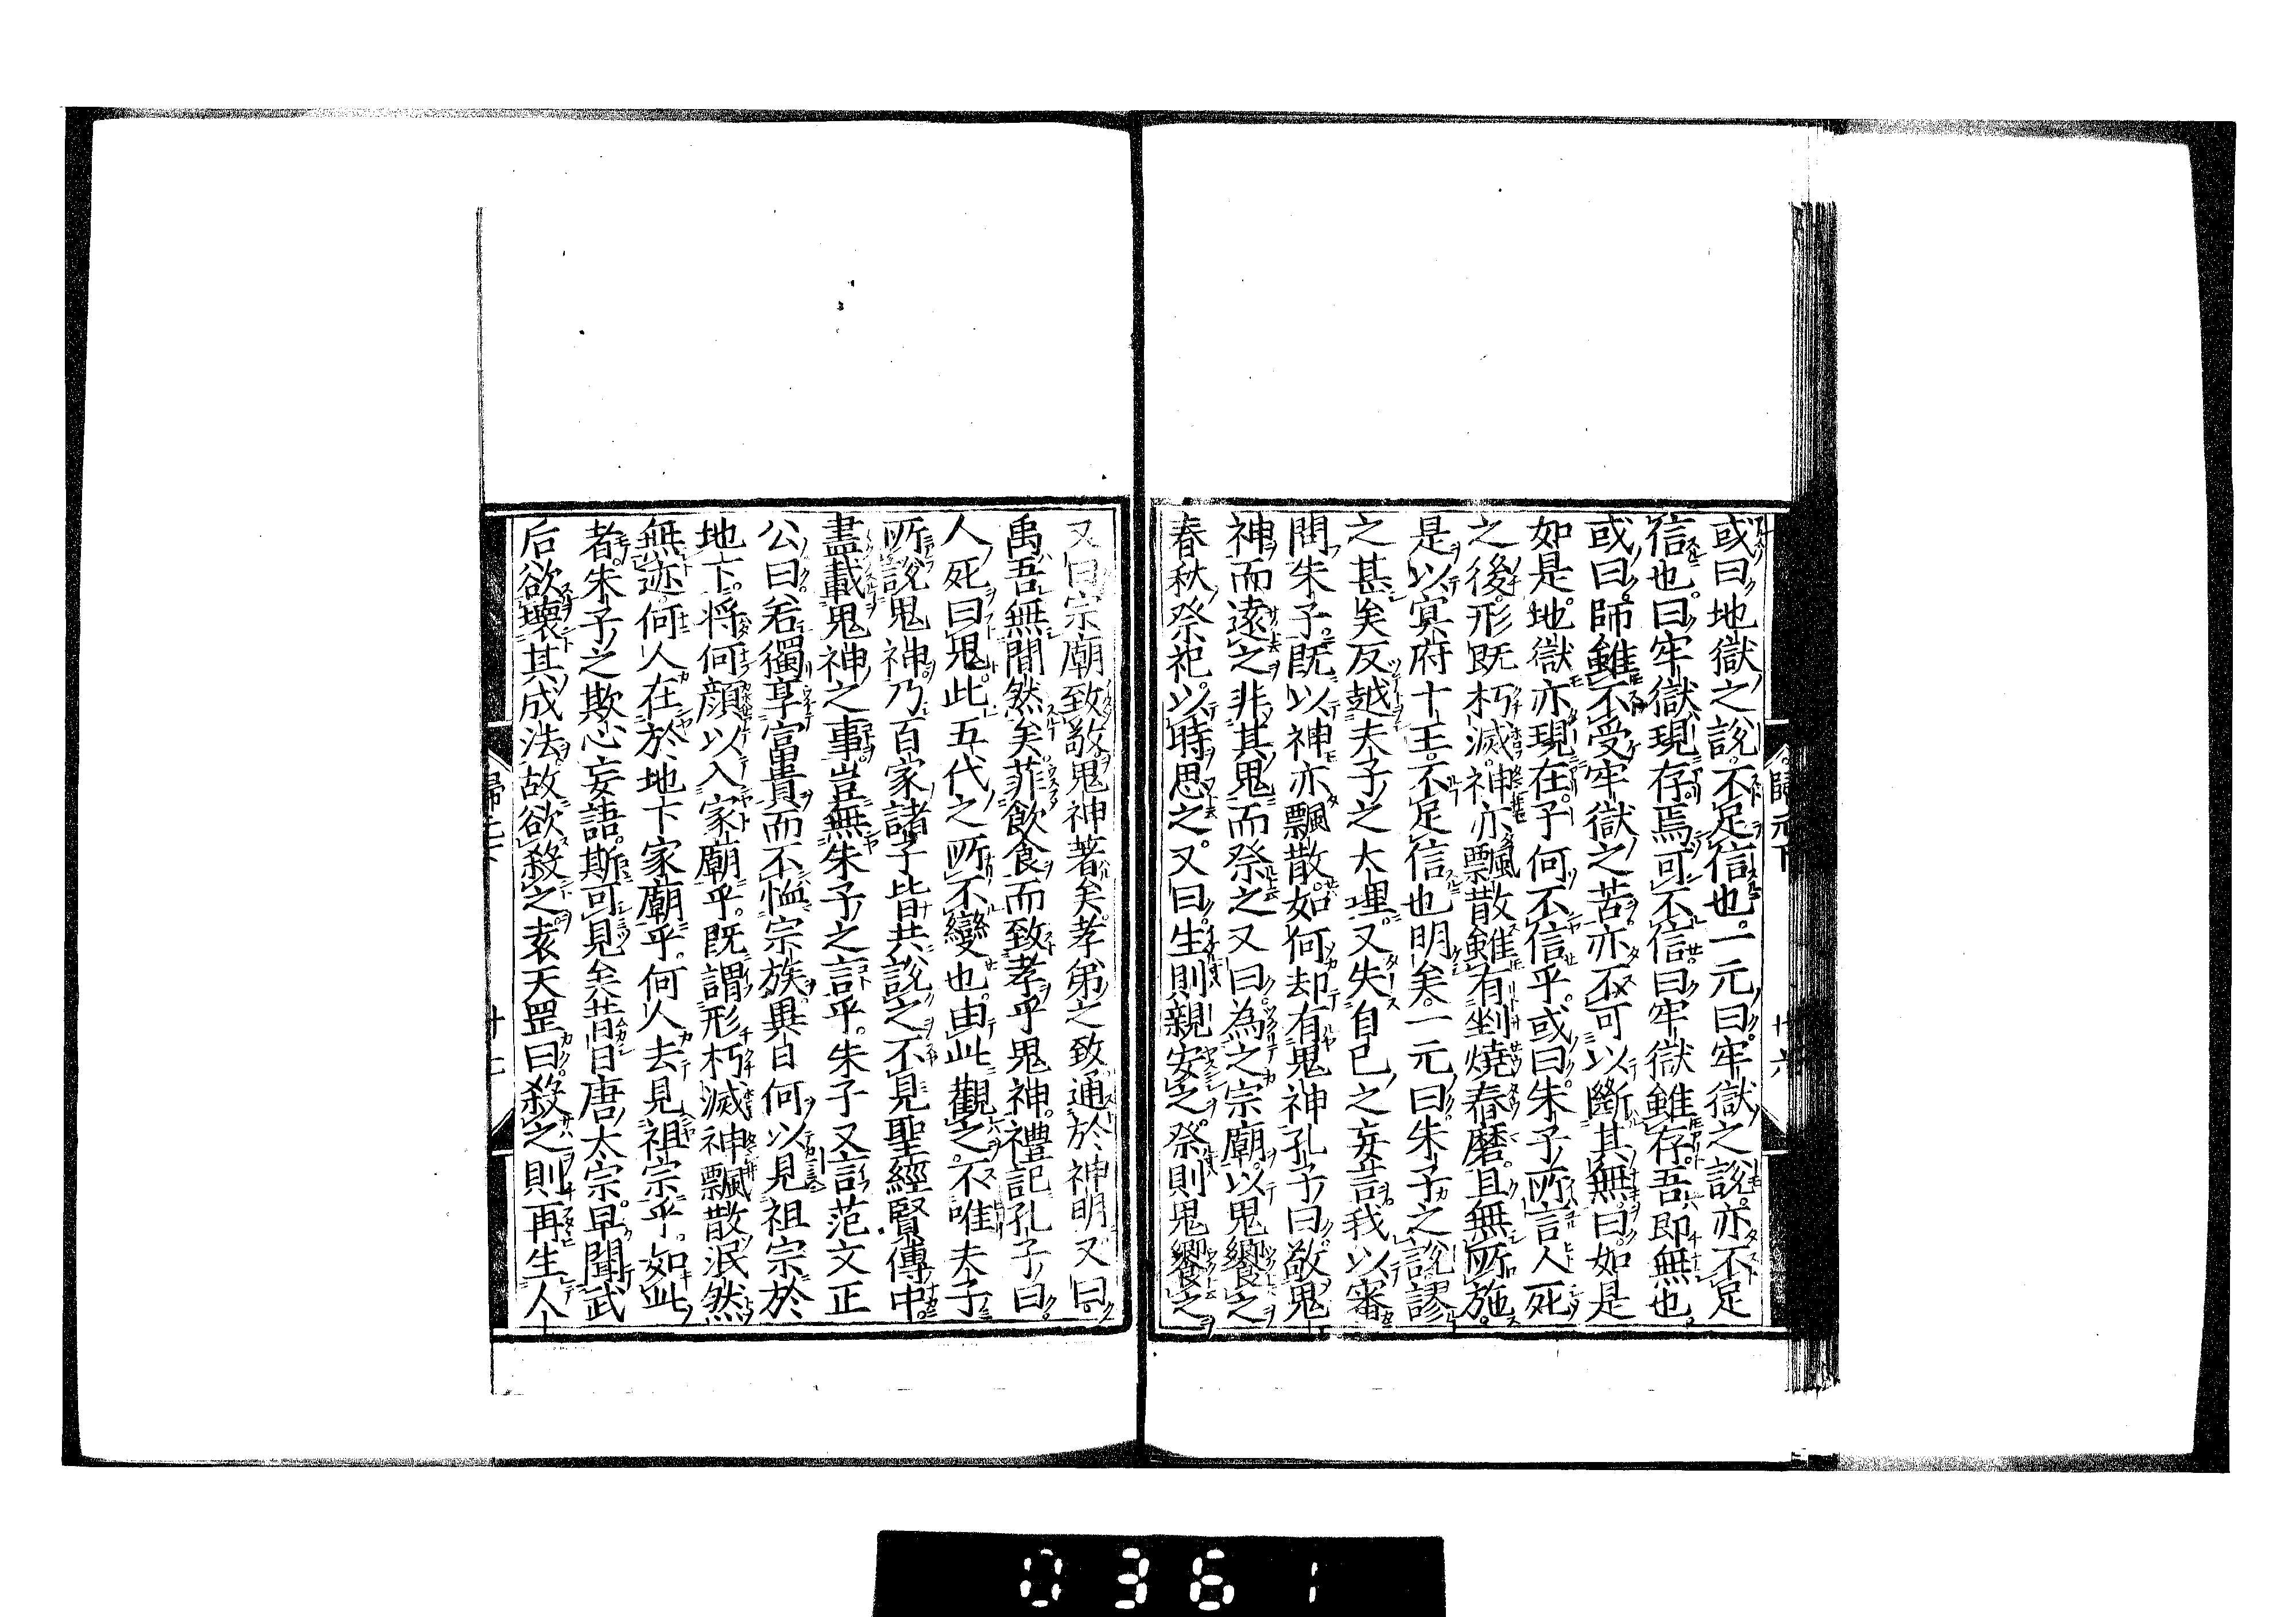 或曰地獄之說不足信也一元曰牢獄之說亦不足
信也曰牢獄現存焉可不信曰牢獄雖存吾即無也
或曰師雖不受牢獄之苦亦不可以斷其無曰如是
如是地獄亦現在子何不信乎或曰朱子所言人死
之後形既朽滅神亦飄散雖有剉燒舂磨且無所施
是以冥府十王不足信也明矣一元曰朱子之說謬
之甚矣反越夫子之大理又失自己之妄言我以審
問朱子既以神亦飄散如何却有鬼神孔子曰敬鬼
神而遠之非其鬼而祭之又曰為之宗廟以鬼饗之
春秋祭祀以時思之又曰生則親安之祭則鬼饗之
又曰宗廟致敬鬼神著矣孝弟之致通於神明又曰
禹吾無間然矣菲飲食而致孝乎鬼神禮記孔子曰
人死曰鬼此五代之所不變也由此觀之不唯夫子
所說鬼神乃百家諸子皆共說之不見聖經賢傳中
盡載鬼神之事豈無朱子之言乎朱子又言范文正
公曰若獨享富貴而不恤宗族異日何以見祖宗於
地下將何顏以入家廟乎既謂形朽滅神飄散泯然
無迹何人在於地下家廟乎何人去見祖宗乎如此
者朱子之欺心妄語斯可見矣昔日唐太宗早聞武
后欲壞其成法故欲殺之袁天罡曰殺之則再生人
歸元下
廿六
0361